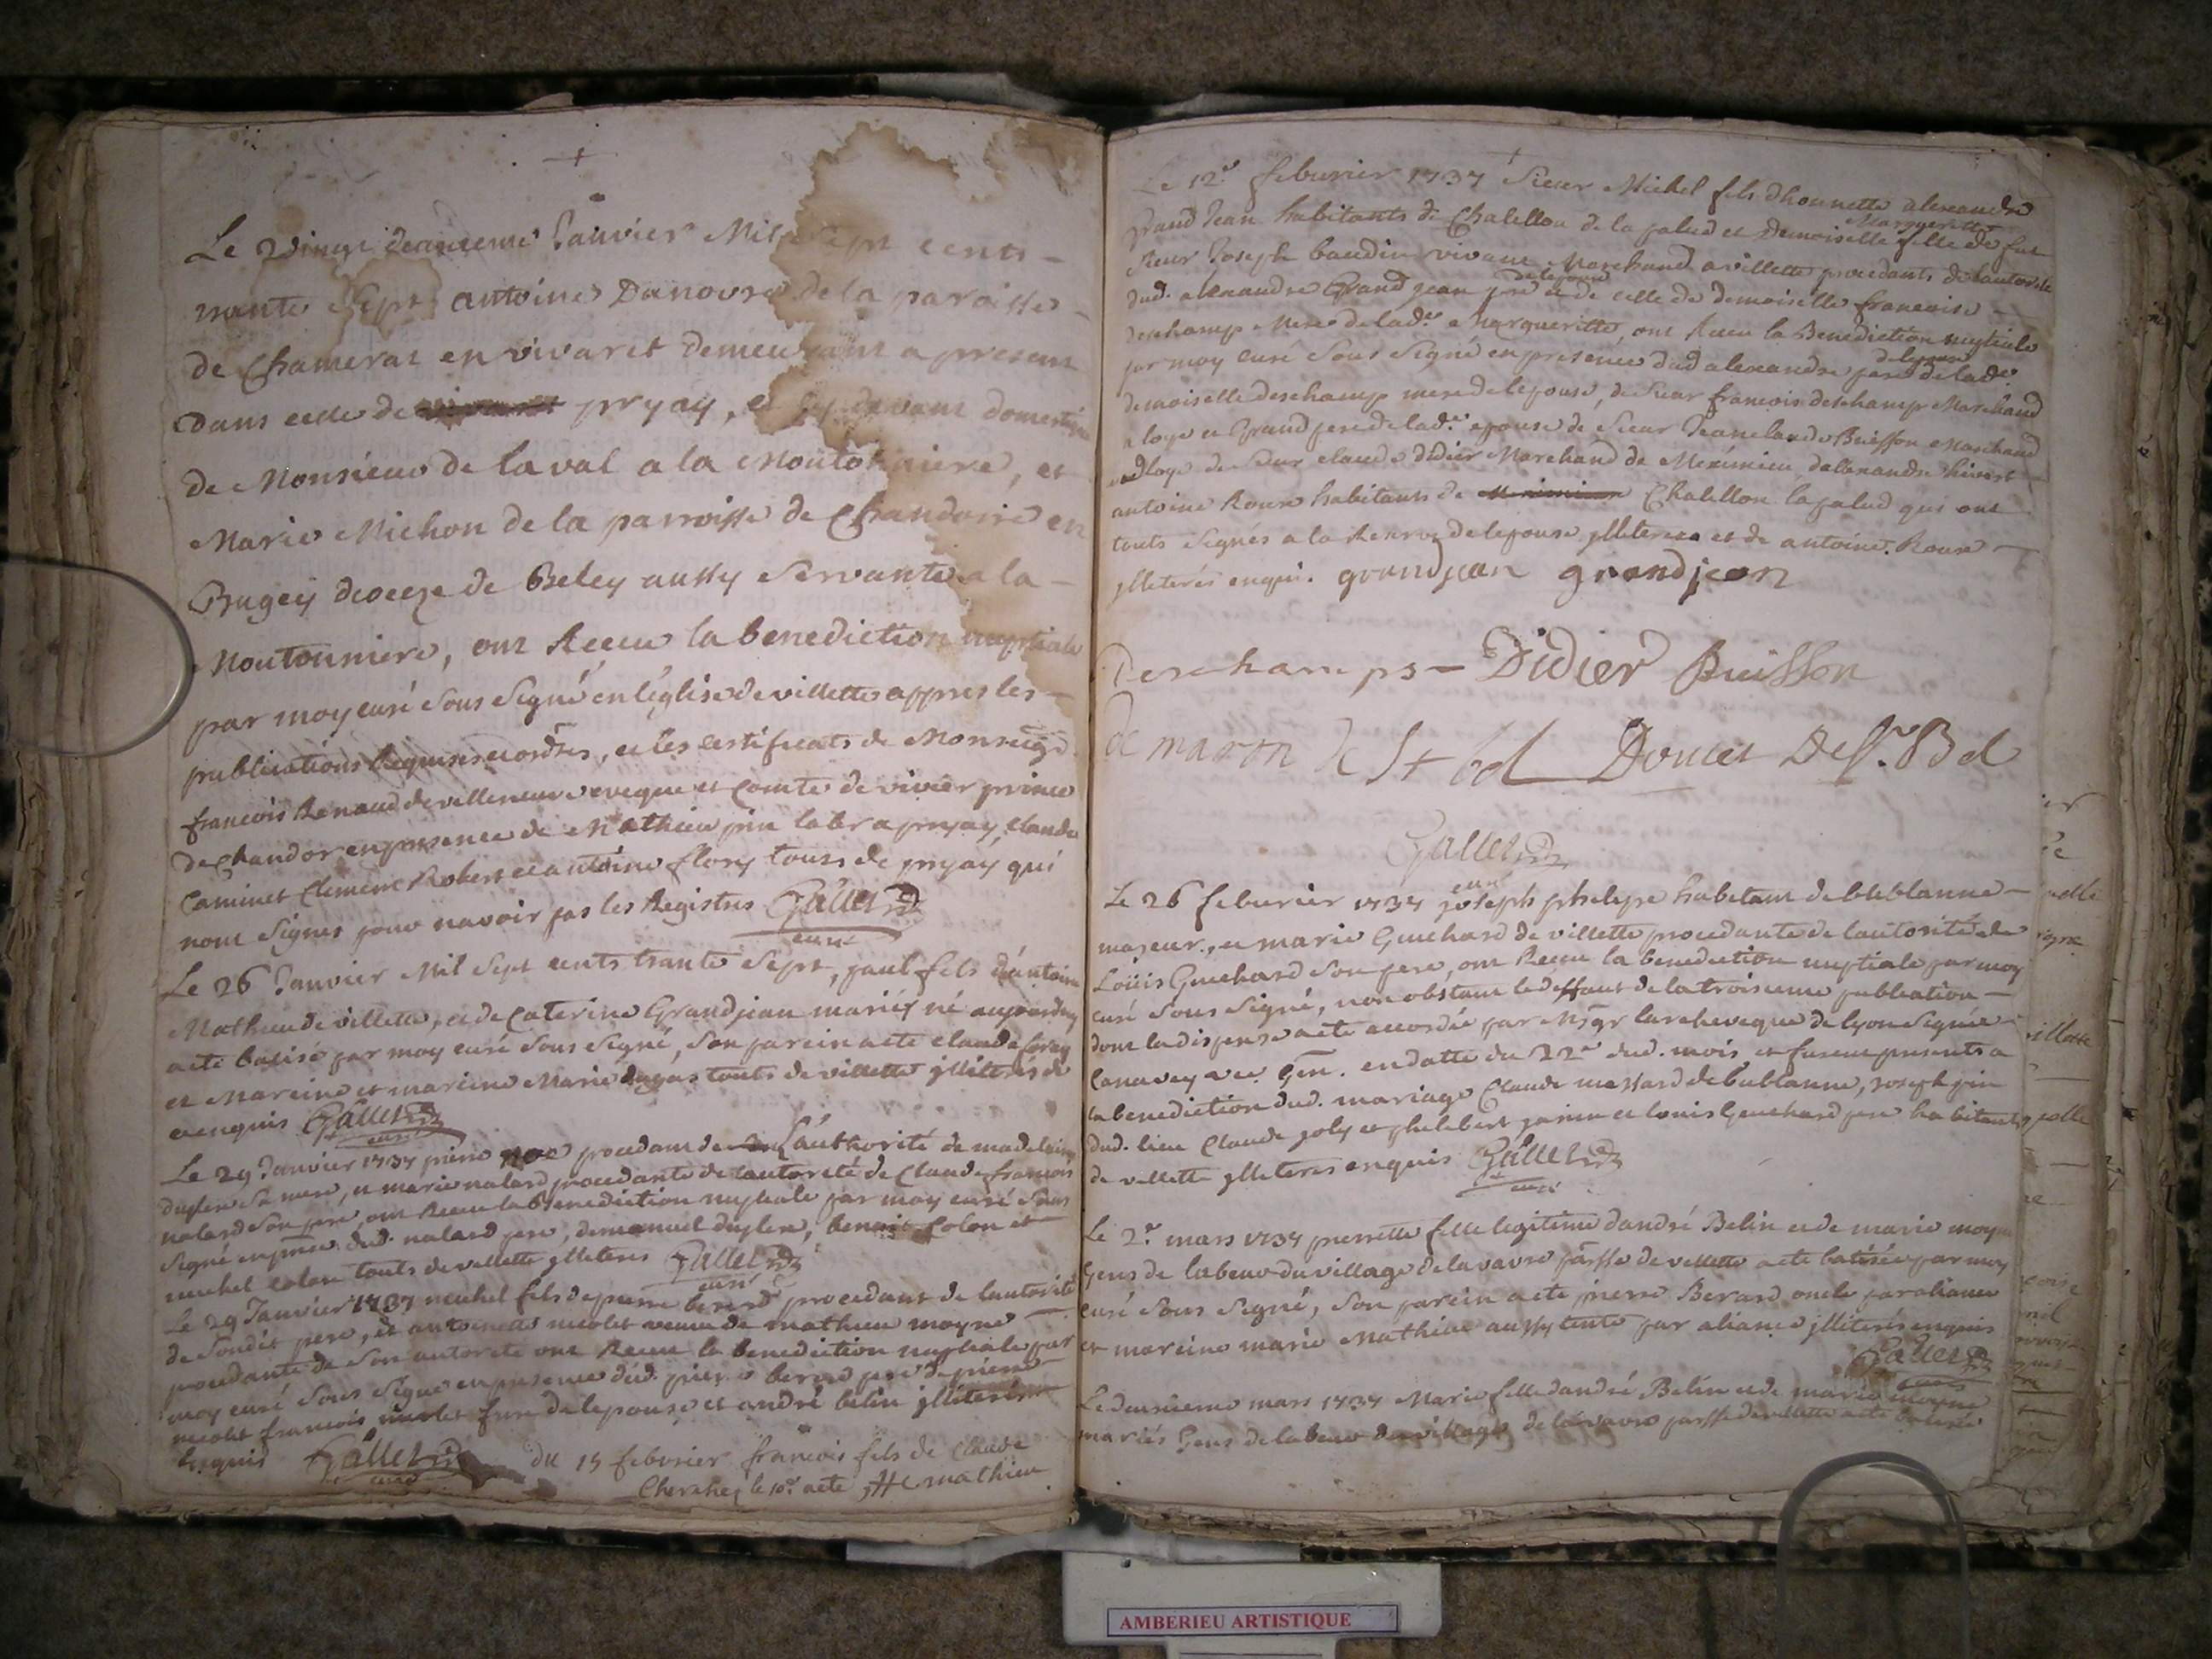 Le vingt deuxieme Janvier Mil sept cents
trante Sept antoine Danoure de la paroisse
de Chamerat en vivaret demeurant a present
Dans celle de pryay, et devant domestique
de Monsieur de la val a la Moutonniere, et
Marie Michon de la parroisse de Chandorre en
Bugey dioceze de Beley aussy Servante a la
Moutonniere, ont Receu la benediction nuptiale
par moy curé Sous Signé en l'église de villette appres les
publications Requises, et les certificats de Monseigr
francois Renaud de villeneuve eveque et Comte de vivier prince
de Chandor en presence de Mathieu pin labr a pryay, Claude
Caminet Clement Robert et antoine flory touts de pryay, qui
nont Signes pour navoir pas les Registres Gallet
curé
Le 26 Janvier Mil Sept cents trante Sept, paul fils d'antoine
Mathieu de villette, et de Caterine Grandjean mariés né
a eté batisé par moy curé Sous Signé, Son parein a eté claude
et Mareine et mareine Marie dugas touts de villette jlliteres de
ce enquis Gallet
curé
Le 29 Janvier 1737 piere procedant de L'authorité de madeleine
Sa mere, et marie nalard procedante de lautorité de Claude francois
nalard Son pere, ont Receu la Benediction nuptiale par moy curé Sous
Signé en presence dud. nalard pere, demanuel, benoit Colon et
michel colon touts de villette jlliteres Gallet
curé
Le 29 Janvier 1737 michel fils de pierre berard procedant de lautorité
de Sondit pere, et antoinette nicolet veuve de mathieu moyne
procedante de Son autorité ont Receu la benediction nuptiale par
moy curé Sous Signé en presence dud. pierre berard pere de pierre
nicolet francois nicolet frere de lepouse et andré belin jlliterés
Enquis Gallet
curé
Du 15 febvrier francois fils de Claude
Cherchez le 10e acte Mathieu
Le 12e. febvrier 1737 Sieur Michel fils dhonnette alexandre
Grand Jean habitants de Chatillon de la palud et Demoiselle Margueritte fille de fut
Sieur Joseph baudin vivant Marchand a villette procedants de lautorité
dud. alexandre Grand jean pere de lepoux et de celle de demoiselle francoise
deschamp Mere de lade. Margueritte, ont Receu la Benediction nuptiale
par moy curé Sous Signé en presence dud alexandre pere de lepoux de lade.
demoiselle deschamp mere de lepouse, de Sieur francois deschamp Marchand
a loye et Grand pere de lade. epouse de Sieur Jean claude Buisson Marchand
aud loye de Sieur claude didier Marchand de Meximieu dalexandre
antoine Roux habitants de Chatillon la palud qui ont
touts Signés a la Reserve de lepouse jlliteree et de antoine Roux
jlliterés enquis. grandjean grandjean
Deschamps Didier Buisson
Doucet
Gallet
curé
Le 26 febvrier 1737 joseph phelipe habitant de bublanne
majeur, et marie Guichard de villette procedante de lautorité de
Loüis Guichard Son pere, ont Receu la benediction nuptiale par moy
curé Sous Signé, non obstant le deffaut de la troisieme publication
dont la dispense a eté accordée par Msgr larcheveque de lyon Signée
Canavey vic Gen. en datte du 22e dud. mois, et furent presents a
la benediction dud. mariage Claude massard de bublanne, joseph pin
dud. lieu Claude joly et philebert janin et louis Guichard pere habitants
de villette jlliteres enquis Gallet
curé
Le 2e. mars 1737 pierrette fille legitime dandré Belin et de marie moyne
Gens de labeur du village de lavavre pārsse de villette a eté batisée par moy
curé Sous Signé, Son parein a eté pierre Berard oncle par aliance
et mareine marie Mathieu aussy tente par aliance jlliterés enquis
Gallet
curé
Le deuxieme mars 1737 Marie fille dandré Belin et de marie moyne
mariés Gens de labeur du village de lavavre parsse de villette a eté batisée
AMBERIEU ARTISTIQUE